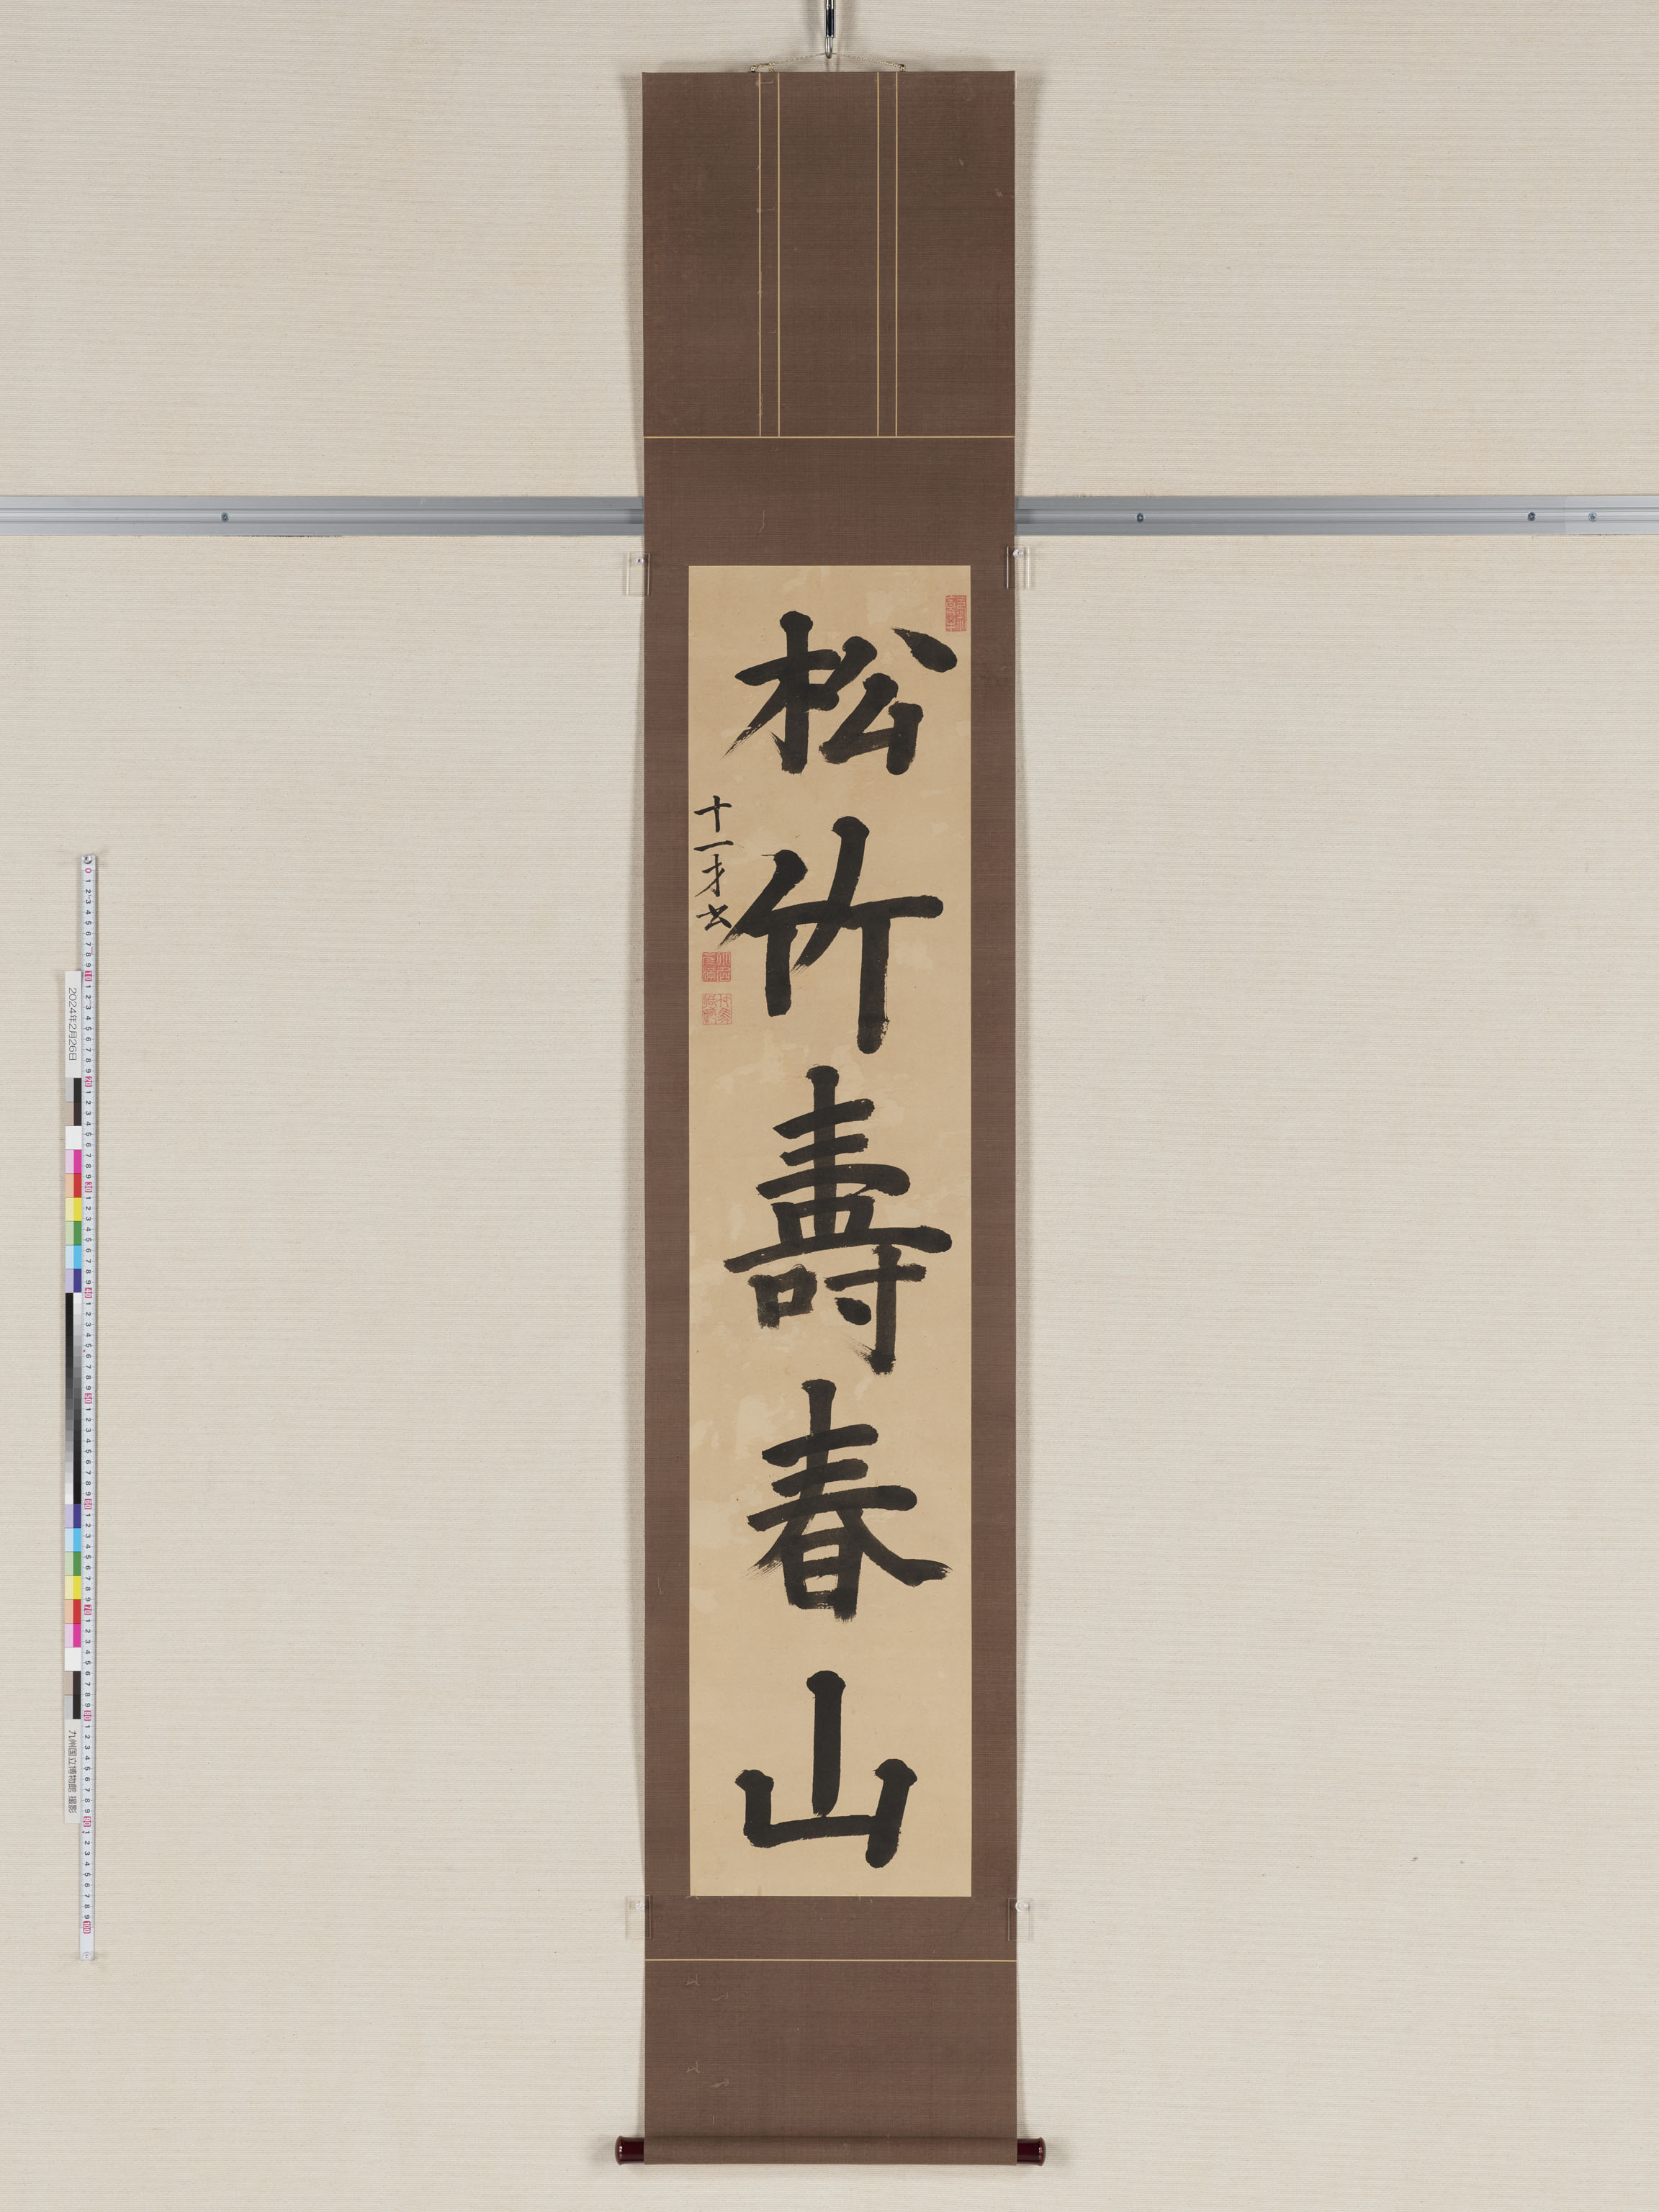 松竹壽春山
十一才書
2024年2月26日
九州国立博物館 撮影